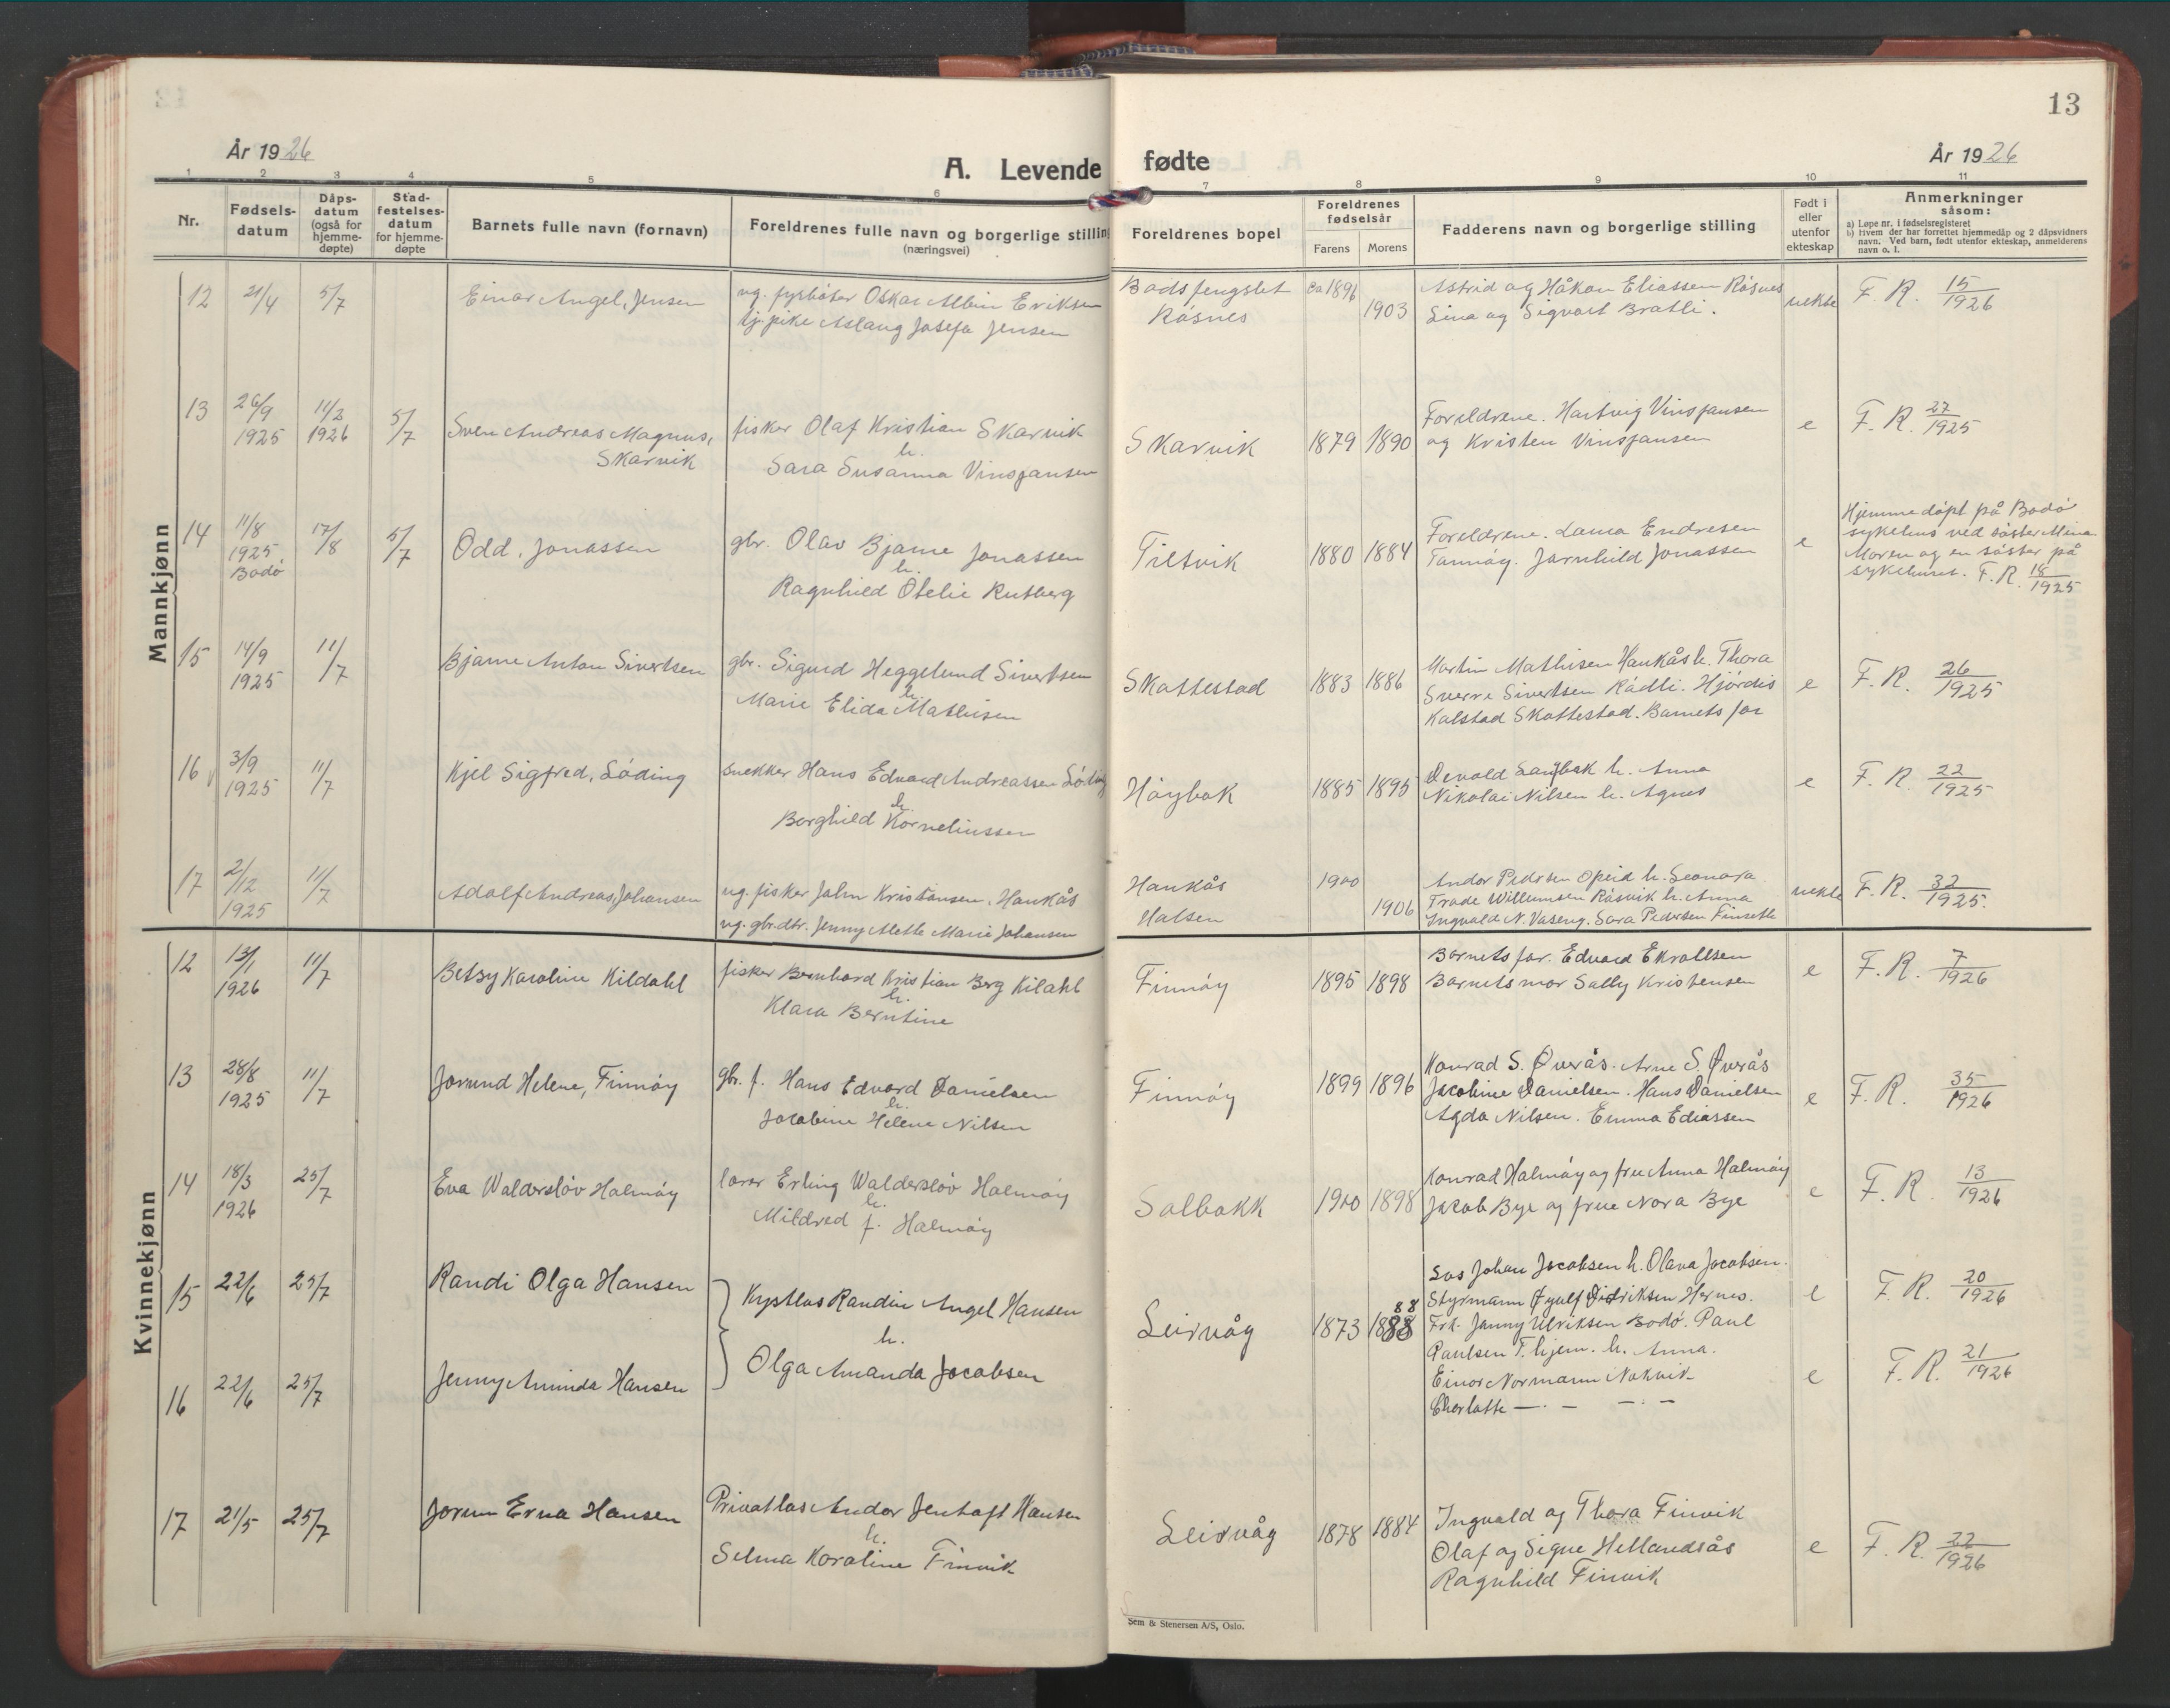 13
År 1926
A. Levende fødte
År 1926
1 2 3 4 5 6 7 8 9 10 11
Nr.
Fødsels-
datum
Dåps-
datum
(også for
hjemme-
døpte)
Stad-
festelses-
datum
for hjemme-
døpte
Barnets fulle navn (fornavn)
Foreldrenes fulle navn og borgerlige stilling
(næringsvei)
Foreldrenes bopel
Foreldrenes
fødselsår
Farens Morens
Fadderens navn og borgerlige stilling
Født i
eller
utenfor
ekteskap
Anmerkninger
såsom:
a) Løpe nr. i fødselsregisteret
b) Hvem der har forrettet hjemmedåp og 2 dåpsvidners
navn. Ved barn, født utenfor ekteskap, anmelderens
navn o. l.
Mannkjønn
12 21/4 5/7 Einar Angel, Jensen
ug. fyrbøter Oskar Albin Eriksen
tj. pike Aslaug Josefa Jensen
Bodsfengslet
Råsnes
ca 1896
1903
Astrid og Håkon Eliassen Råsnes
Lina og Sigvart Bratli.
uekte
F. R. 15/1926
13 26/9 1925 11/2 1926 5/7
Sven Andreas Magnus,
Skarvik
fisker Olaf Kristian Skarvik
h.
Sara Susanna Vinsjansen
Skarvik 1879 1890
Foreldrene. Hartvig Vinsjansen
og Kristen Vinsjansen
e
F. R. 27/1925
14 11/8 1925 Bodø 17/8 5/7
Odd, Jonassen
gbr. Olav Bjarne Jonassen
h.
Ragnhild Otelie Rutberg
Tiltvik 1880 1884
Foreldrene. Laura Endresen
Tannøy. Jarnhild Jonassen
e
Hjemmedøpt på Bodø
sykehus ved søster Mina
Moren og en søster på
sykehuset. F. R. 18/1925
15 14/9 1925 11/7
Bjarne Anton Sivertsen
gbr. Sigurd Heggelund Sivertsen
h.
Marie Elida Mathisen
Skattestad 1883 1886
Martin Mathisen Haukås h. Thora
Sverre Sivertsen Rådli. Hjørdis
Kalstad Skottestad. Barnets far
e
F. R. 26/1925
16 3/9 1925 11/7
Kjel Sigfred, Løding
snekker Hans Edvard Andreassen Løding
h.
Borghild Korneliussen
Høybak 1885 1895
Devold h. Anna
Nikolai Nilsen h. Agnes
e
F. R. 22/1925
17 2/12 1925 11/7
Adolf Andreas, Johansen
ug. fisker John Kristiansen, Haukås
ug. gbr.dtr. Jenny Mette Marie Johansen
Haukås
Halsen
1900
1906
Andor Pedersen Opeid h. Leonora
Frade Willumsen Råsvik h. Anna
Ingvald N. Vaseng. Sara Pedersen Finsetle
uekte
F. R. 32/1925.
Kvinnekjønn
12 13/1 1926 11/7
Betsy Karoline Kildahl
fisker Bernhard Kristian Berg Kilahl
h.
Klara Berntine
Finnøy 1895 1898
Barnets far. Edvard Ekrollsen
Barnets mor Sally Kristensen
e
F. R. 7/1926
13 28/8 1925 11/7
Jorund Helene, Finnøy
gbr. f. Hans Edvard Danielsen
h.
Jacobine Helene Nilsen
Finnøy 1899 1896
Konrad S. Øverås. Arne S. Øverås
Jacobine Danielsen. Hans Danielsen
Agda Nilsen. Emma Ediassen
e
F. R. 35/1926
14 18/3 1926 25/7
Eva Waldersløv Halmøy
lærer Erling Waldersløv Halmøy
h.
Mildred f. Halmøy
Solbakk 1900 1898
Konrad Halmøy og frue Anna Halmøy
Jakob Bye og frue Nora Bye
e
F. R. 13/1926
15 22/6 25/7
Randi Olga Hansen
Kystlos Randin Angel Hansen
h.
Olga Amanda Jacobsen
Leirvåg 1873 1888
88
Los Johan Jacobsen h. Olava Jacobsen.
Styrmann Øyulf Didriksen Hernes.
Frk. Jenny Ulriksen Bodø. Paul
Paulsen T. hjem. h. Anna.
Einar Normann Nakvik
Charlotte — . — — . —
e
F. R. 20/1926
16 22/6 25/7
Jenny Aminda Hansen
e
F. R. 21/1926
17 21/5 25/7
Jorun Erna Hansen
Privatlos Andor Jentoft Hansen
h.
Selma Karoline Finvik
Leirvåg 1878 1884
Ingvald og Thora Finvik
Olaf og Signe Hellandsås
Ragnhild Finvik
e
F. R. 22/1926
Sem & Stenersen A/S, Oslo.